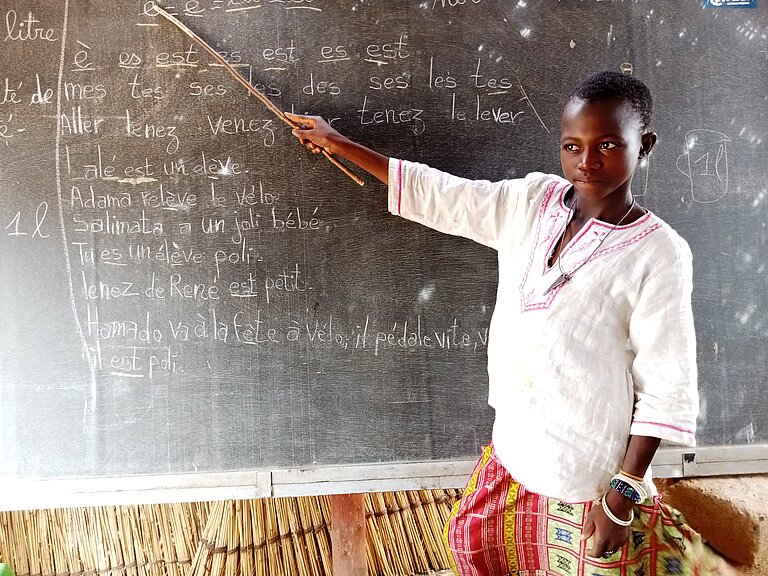 litre
è es est es est es est
té de
mes tes ses les des ses les tes
Aller tenez venez tenez le lever
é-
Lalé est un élève.
Adama relève le vélo.
1 l
Salimata a un joli bébé.
Tu es un élève poli.
René est petit.
Hamado va à la fête à vélo, il pédale vite, v
il est poli.
1l